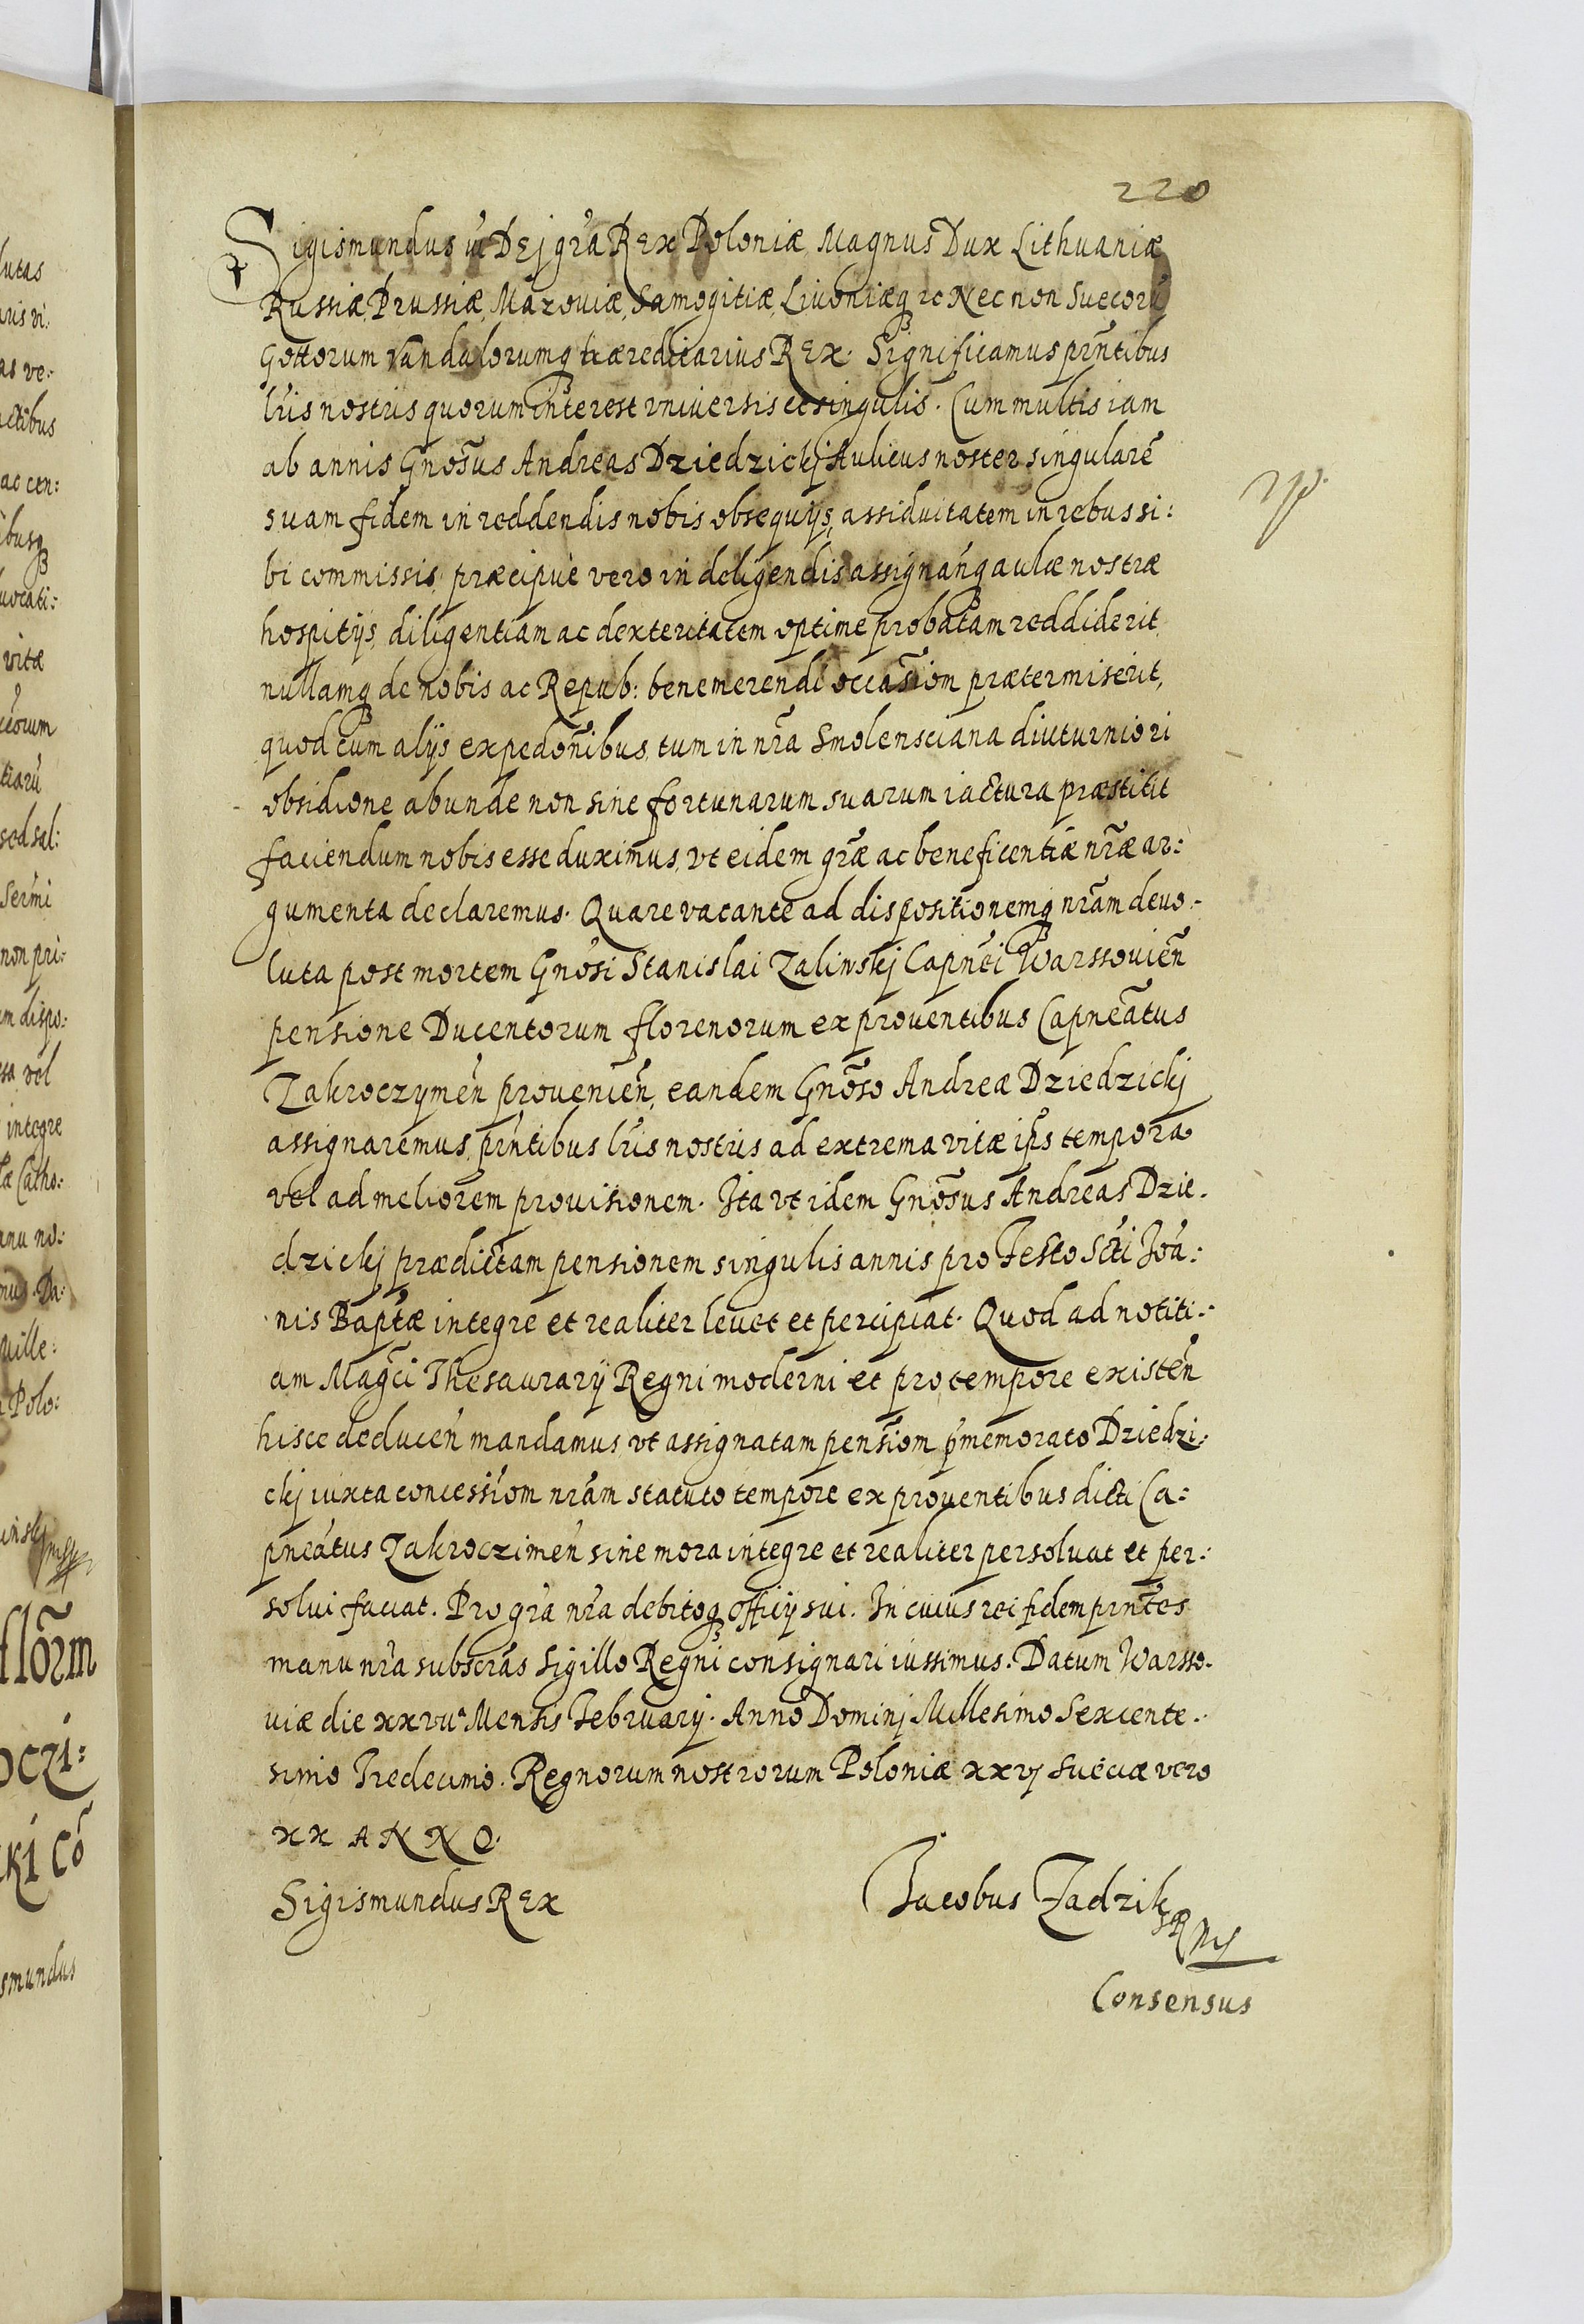 220
Sigismundus iii DEj gra REx Poloniæ Magnus Dux Lithuaniæ
Russiæ, Prussiæ, Mazouiæ, Samogitiæ, Liuoniæq3 zc Nec non Suecorũ
Gottorum Vandalorumq3 hæreditarius REx. Significamus prñtibus
lris nostris quorum interest vniuersis et singulis. Cum multis iam
ab annis Gnõsus Andreas Dziedzickj Aulicus noster singularẽ
suam fidem in reddendis nobis obsequijs, assiduitatem in rebus si:
bi commissis, præcipuè vero in deligendis assignanq3 aulæ nostræ
hospitijs, diligentiam ac dexteritatem optime probatam reddiderit,
nullamq3 de nobis ac Repub: benemerendi occasiom prætermiserit,
quod cum alijs expedõnibus, tum in nrã Smolensciana diuturniori
obsidione abunde non sine fortunarum suarum iactura præstitit
faciendum nobis esse duximus, vt eidem grãæ ac beneficentiæ nrãæ ar:
gumenta declaremus. Quare vacante ad dispositionemq3 nrãm deuo:
luta post mortem Gnosi Stanislai Zalinskj Capnei Warssouien
pensione Ducentorum florenorum ex prouentibus Capneatus
Zakroczymen prouenien, eandem Gnõso Andreæ Dziedzickj
assignaremus, prñtibus lris nostris ad extrema vitæ ips tempora
vel ad meliorem prouisionem. Ita vt idem Gnõsus Andreas Dzie.
dzickj prædictam pensionem singulis annis pro Festo Scti Joã:
nis Baptæ integre et realiter leuet et percipiat. Quod ad notiti:
am Magci Thesaurarij Regni moderni et pro tempore existen
hisce deducen mandamus, vt assignatam pensiom pmemorato Dziedzi:
ckj iuxta concessiom nram statuto tempore ex prouentibus dicti Ca:
pneatus Zakroczimen sine mora integre et realiter persoluat et per:
solui faciat. Pro gra nra debitoq3 officij sui. In cuius rei fidem prñtes
manu nra subscras Sigillo Regni consignari iussimus. Datum Warsso.
uiæ die xxvii Mensis February. Anno Dominj Millesimo Sexcente.
simo Tredecimo. Regnorum nostrorum Poloniæ xxvj Sueciæ vero
XX ANNO.
Sigismundus REx
Jacobus Zadzik
SRMS
Consensus